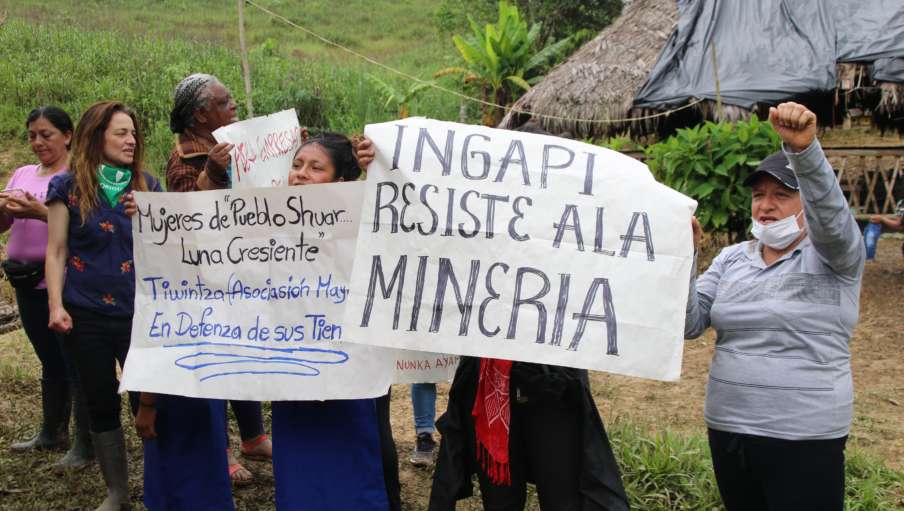 EMPRESA
Mujeres de "Pueblo Shuar...
Luna Cresiente"
Tiwintza (Asociasión May
En Defenza de sus Tien
INGAPI
RESISTE ALA
MINERIA
NUNKA AYAM